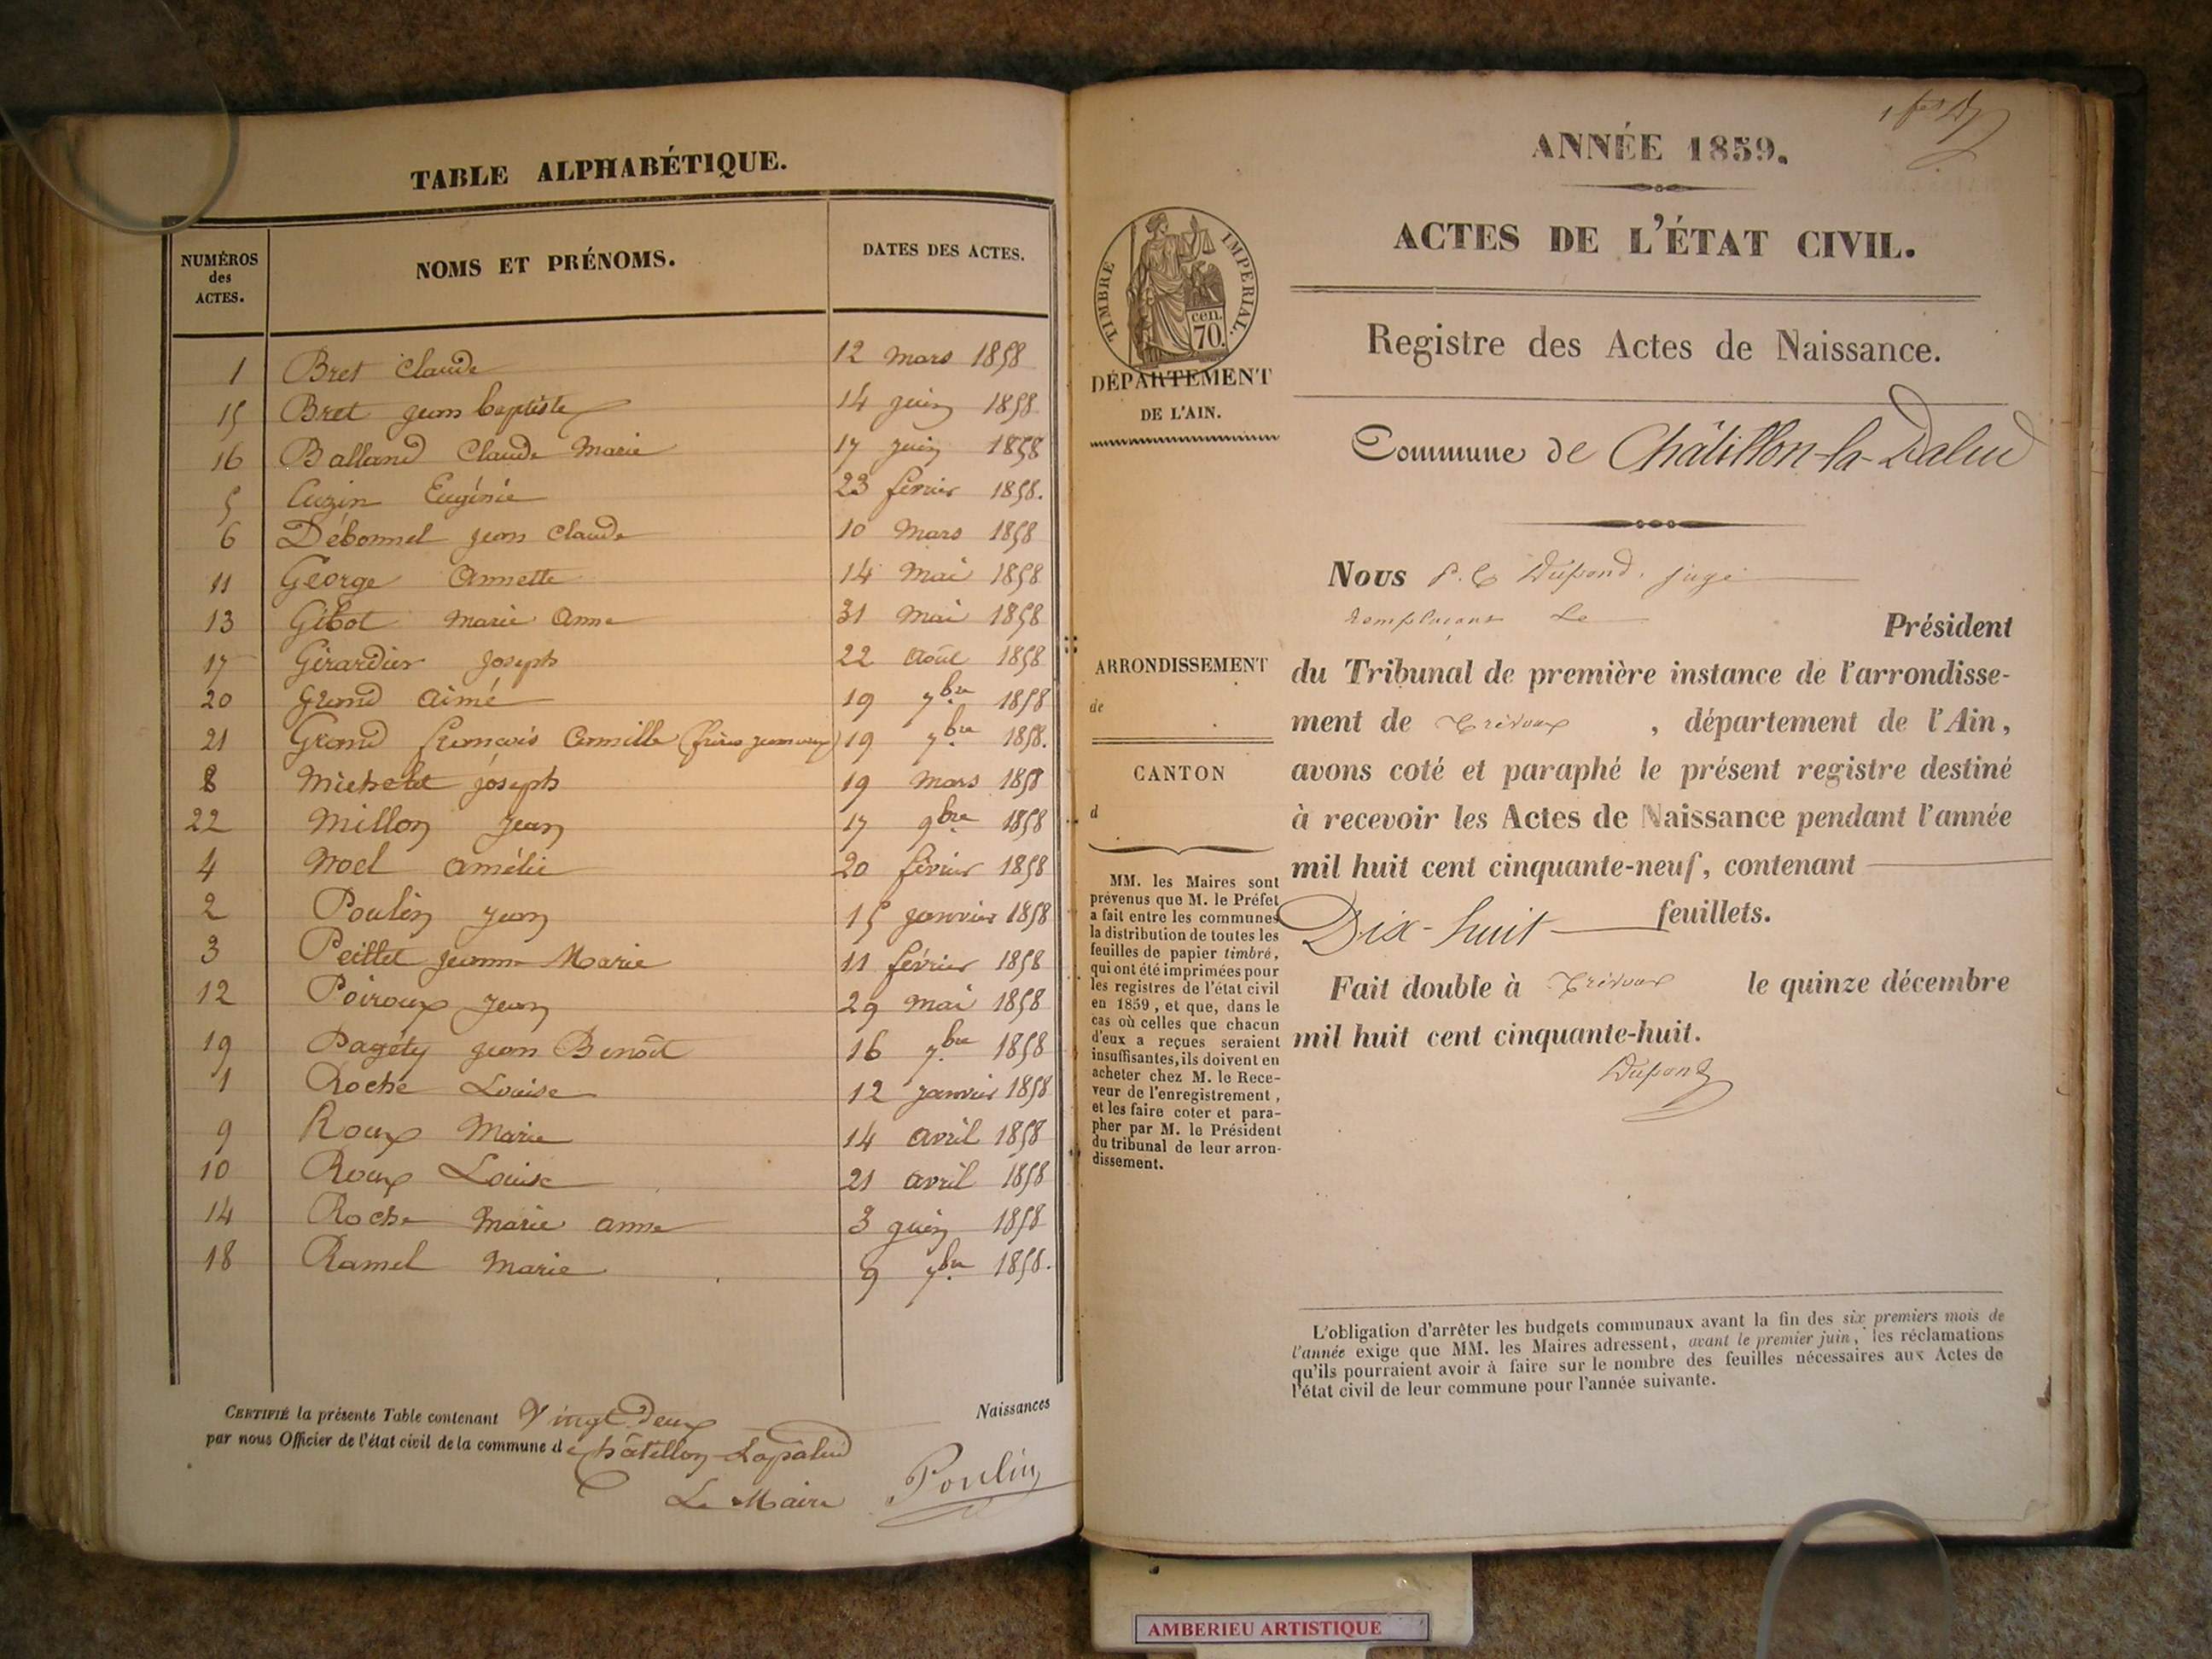 TABLE ALPHABÉTIQUE.
NUMÉROS des ACTES.
NOMS ET PRÉNOMS.
DATES DES ACTES.
1 Bret Claude 12 mars 1858
15 Bret jean baptiste 14 juin 1858
16 Balland Claude Marie 17 juin 1858
5 Cuzin Eugénie 23 février 1858.
6 Débonnel jean Claude 10 Mars 1858
11 George Annette 14 Mai 1858
13 Gibot marie Anne 31 mai 1858
17 Girardier Joseph 22 août 1858
20 Grand Aimé 19 7bre 1858
21 Grand françois Camille (frères jumeaux) 19 7bre 1858.
8 Michelet joseph 19 mars 1858
22 Millon Jean 17 9bre 1858
4 Noel Amélie 20 février 1858
2 Poulin Jean 15 janvier 1858
3 Peillet jeanne Marie 11 février 1858
12 Poiroux Jean 29 mai 1858
19 Pagéty jean Benoît 16 7bre 1858
1 Roche Louise 12 janvier 1858
9 Roux Marie 14 avril 1858
10 Roux Louise 21 avril 1858
14 Roche Marie anne 3 juin 1858
18 Ramel Marie 9 7bre 1858.
CERTIFIÉ la présente Table contenant Vingt-Deux Naissances
par nous Officier de l'état civil de la commune de Châtillon-Lapalud
Le Maire Poulin
ANNÉE 1859.
ACTES DE L'ÉTAT CIVIL.
TIMBRE IMPERIAL.
cen.
70.
DÉPARTEMENT
DE L'AIN.
Registre des Actes de Naissance.
Commune de Châtillon-la-Palud
Nous P. C. Dupond, juge
remplaçant Le Président
du Tribunal de première instance de l'arrondisse-
ment de Trévoux, département de l'Ain,
avons coté et paraphé le présent registre destiné
à recevoir les Actes de Naissance pendant l'année
mil huit cent cinquante-neuf, contenant
Dix-huit feuillets.
Fait double à Trévoux le quinze décembre
mil huit cent cinquante-huit.
Dupond
ARRONDISSEMENT
de
CANTON
d
MM. les Maires sont
prévenus que M. le Préfet
a fait entre les communes
la distribution de toutes les
feuilles de papier timbré,
qui ont été imprimées pour
les registres de l'état civil
en 1859, et que, dans le
cas où celles que chacun
d'eux a reçues seraient
insuffisantes, ils doivent en
acheter chez M. le Rece-
veur de l'enregistrement,
et les faire coter et para-
pher par M. le Président
du tribunal de leur arron-
dissement.
L'obligation d'arrêter les budgets communaux avant la fin des six premiers mois de
l'année exige que MM. les Maires adressent, avant le premier juin, les réclamations
qu'ils pourraient avoir à faire sur le nombre des feuilles nécessaires aux Actes de
l'état civil de leur commune pour l'année suivante.
AMBERIEU ARTISTIQUE